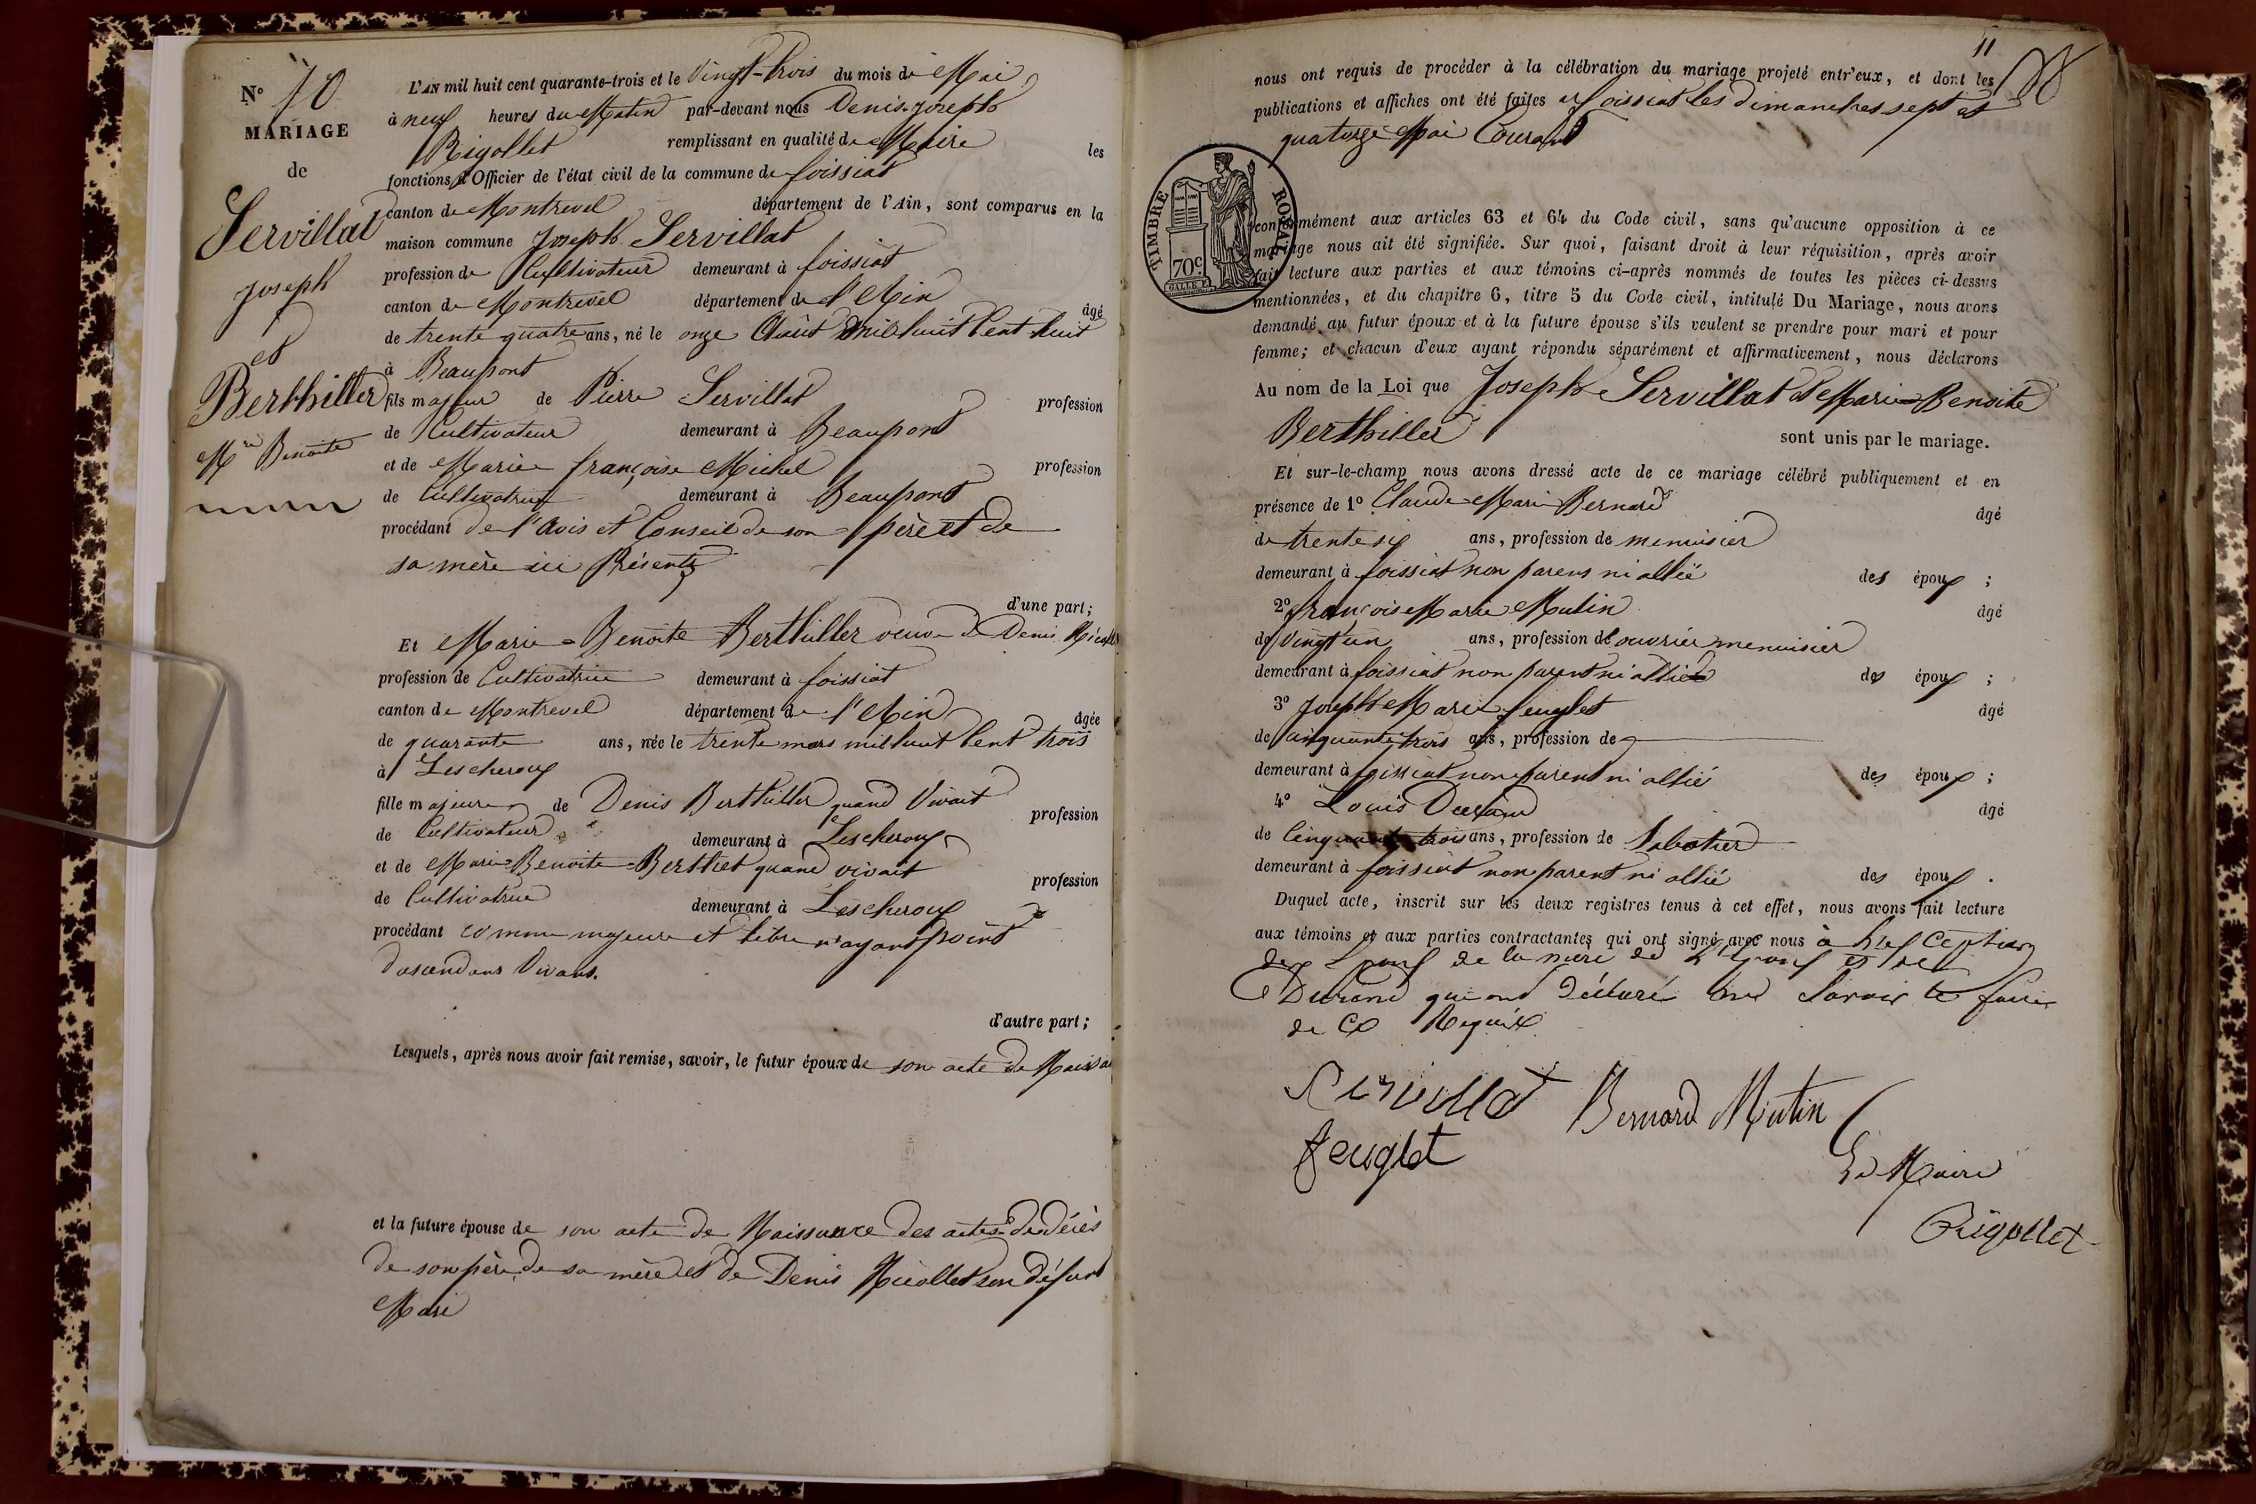 N° 10
MARIAGE
de
Servillat
Joseph
et
Berthiller
Mie Benoite
L'AN mil huit cent quarante-trois et le Vingt-trois du mois de Mai
à neuf heures du Matin par-devant nous Denis-Joseph
Rigollet remplissant en qualité de Maire les
fonctions d'Officier de l'état civil de la commune de foissiat
canton de Montrevel département de l'Ain, sont comparus en la
maison commune Joseph Servillat
profession de Cultivateur demeurant à foissiat
canton de Montrevel département de l'Ain âgé
de trente quatre ans, né le onze Août mil huit Cent huit
à Beaupont
fils majeur de Pierre Servillat profession
de Cultivateur demeurant à Beaupont
et de Marie françoise Michel profession
de Cultivatrice demeurant à Beaupont
procédant de l'Avis et Conseil de son père et de
sa mère ici Présents
d'une part;
Et Marie=Benoite Berthiller veuve de Denis
profession de Cultivatrice demeurant à foissiat
canton de Montrevel département de l'Ain âgée
de quarante ans, née le trente mars mil huit Cent trois
à Lescheroux
fille majeure de Denis Berthiller quand Vivait profession
de Cultivateur demeurant à Lescheroux
et de Marie=Benoite=Berthet quand vivait profession
de Cultivatrice demeurant à Lescheroux
procédant comme majeure et libre n'ayant point
d'ascendans Vivans.
d'autre part;
Lesquels, après nous avoir fait remise, savoir, le futur époux de son acte de
et la future épouse de son acte de Naissance des actes de décès
de son père de sa mère et de Denis Nicollet son défunt
Mari
11
nous ont requis de procéder à la célébration du mariage projeté entr'eux, et dont les
publications et affiches ont été faites à foissiat les dimanches sept et
quatorze Mai Courant
TIMBRE ROYAL
70c
conformément aux articles 63 et 64 du Code civil, sans qu'aucune opposition à ce
mariage nous ait été signifiée. Sur quoi, faisant droit à leur réquisition, après avoir
fait lecture aux parties et aux témoins ci-après nommés de toutes les pièces ci-dessus
mentionnées, et du chapitre 6, titre 5 du Code civil, intitulé Du Mariage, nous avons
demandé au futur époux et à la future épouse s'ils veulent se prendre pour mari et pour
femme; et chacun d'eux ayant répondu séparément et affirmativement, nous déclarons
Au nom de la Loi que Joseph Servillat et Marie=Benoite
Berthiller sont unis par le mariage.
Et sur-le-champ nous avons dressé acte de ce mariage célébré publiquement et en
présence de 1° Claude=Marie Bernard âgé
de trente six ans, profession de menuisier
demeurant à foissiat non parens ni allié des époux ;
2° françois Marie Mutin âgé
de Vingt un ans, profession de ouvrier menuisier
demeurant à foissiat non parent ni allié des époux ;
3° Joseph Marie feuglet âgé
de cinquante trois ans, profession de
demeurant à foissiat non parent ni allié des époux ;
4° Louis Durand âgé
de Cinquante trois ans, profession de Sabotier
demeurant à foissiat non parent ni allié des époux .
Duquel acte, inscrit sur les deux registres tenus à cet effet, nous avons fait lecture
aux témoins et aux parties contractantes qui ont signé avec nous à
de la mère de
Durand qui ont déclaré ne Savoir le faire
de Ce Requis
Servillat Bernard Mutin
feuglet
Le Maire
Rigollet